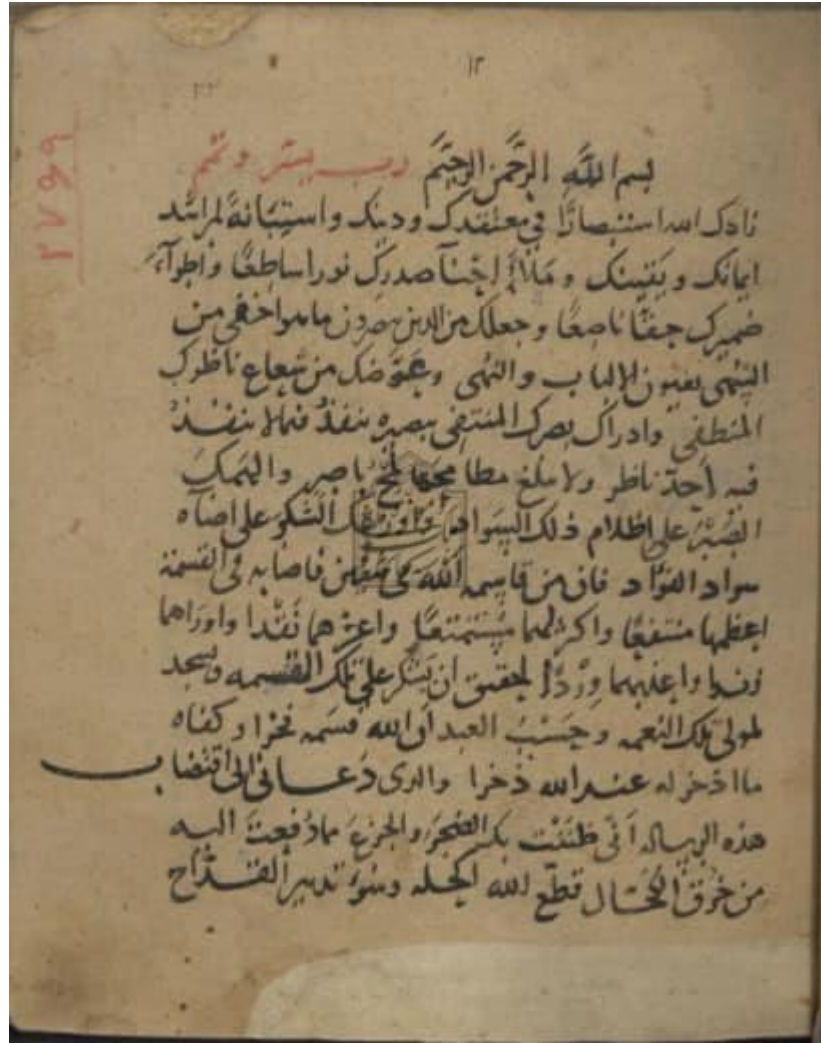 ١٢
٢٧٩٩
بسم الله الرحمن الرحيم رب يسر وتمم
زادك الله استبصارًا في معتقدك ودينك واستبانةً لمراشد
ايمانك ويقينك وملأ صدرك نورا ساطعًا واطوآء
ضميرك حقًّا ناصعًا وجعلك من الذين يبصرون ما هو اخفى من
السُّهى بعيون الالباب والنهى وعوّضك من شعاع ناظرك
المنطفى وادراك بصرك المنتفى بصيره ينفذ فيما لا ينفذ
فيه احدّ ناظر ولا يبلغ مطامحها لمح باصر والهمك
الصّبر على اظلام ذلك السواد الشكر على اضآه
سواد الفؤاد فان من قاسمه الله فاصابه في القسمة
اعظمها منتفعًا واكثرهما مستمتعًا واعزهما نقدا واوراهما
زندا واعذبهما وِرْدًا لحقيق ان يشكر على تلك القسمه ويسجد
لمولى تلك النعمه وحَسْبُ العبد ان الله قسمه فخرا وكفاه
ما اذخر له عند الله ذخرا والذى دَعانى الى اقتضاب
هذه الرساله أنّى ظننت بكم الضجرَ والجزعَ مما دُفعت اليه
من خرق الكحّال قطع الله اكحله وسوء تدبير القدّاح